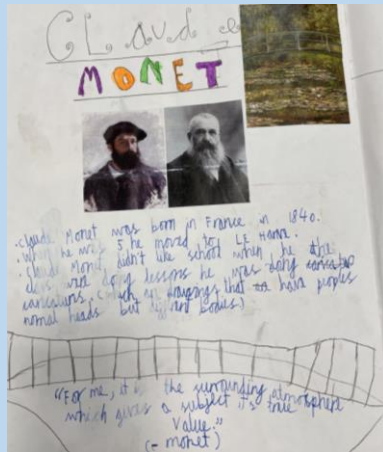 CLaude
MONET
. Claude Monet was born in France in 1840.
. When he was 5 he moved to LE Havre.
. Claude Monet didn't like school when he the
class were doing lessons he was doing
caricatures. (which are drawings that have peoples
normal heads but different bodies)
"For me, it is the surrounding atmosphere
which gives a subject it's true
Value."
(- monet)